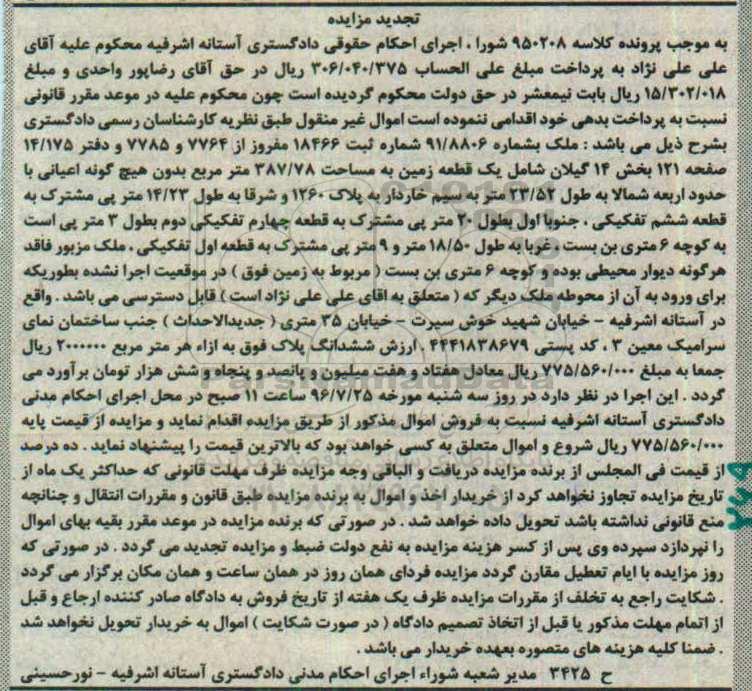 تجدید مزایده
به موجب پرونده کلاسه ۹۵۰۲۰۸ شورا ، اجرای احکام حقوقی دادگستری آستانه اشرفیه محکوم علیه آقای
علی علی نژاد به پرداخت مبلغ علی الحساب ۳۰۶/۰۴۰/۳۷۵ ریال در حق آقای رضاپور واحدی و مبلغ
۱۵/۳۰۲/۰۱۸ ریال بابت نیمعشر در حق دولت محکوم گردیده است چون محکوم علیه در موعد مقرر قانونی
نسبت به پرداخت بدهی خود اقدامی ننموده است اموال غیر منقول طبق نظریه کارشناسان رسمی دادگستری
بشرح ذیل می باشد : ملک بشماره ۹۱/۸۸۰۶ شماره ثبت ۱۸۴۶۶ مفروز از ۷۷۶۴ و ۷۷۸۵ و دفتر ۱۴/۱۷۵
صفحه ۱۲۱ بخش ۱۴ گیلان شامل یک قطعه زمین به مساحت ۳۸۷/۷۸ متر مربع بدون هیچ گونه اعیانی با
حدود اربعه شمالا به طول ۲۳/۵۲ متر به سیم خاردار به پلاک ۱۲۶۰ و شرقا به طول ۱۴/۲۳ متر پی مشترک به
قطعه ششم تفکیکی ، جنوبا اول بطول ۲۰ متر پی مشترک به قطعه چهارم تفکیکی دوم بطول ۳ متر پی است
به کوچه ۶ متری بن بست ، غربا به طول ۱۸/۵۰ متر و ۹ متر پی مشترک به قطعه اول تفکیکی ، ملک مزبور فاقد
هرگونه دیوار محیطی بوده و کوچه ۶ متری بن بست ( مربوط به زمین فوق ) در موقعیت اجرا نشده بطوریکه
برای ورود به آن از محوطه ملک دیگر که ( متعلق به اقای علی علی نژاد است ) قابل دسترسی می باشد . واقع
در آستانه اشرفیه - خیابان شهید خوش سیرت - خیابان ۳۵ متری ( جدیدالاحداث ) جنب ساختمان نمای
سرامیک معین ۳ ، کد پستی ۴۴۴۱۸۳۸۶۷۹ ، ارزش ششدانگ پلاک فوق به ازاء هر متر مربع ۲۰۰۰۰۰۰ ریال
جمعا به مبلغ ۷۷۵/۵۶۰/۰۰۰ ریال معادل هفتاد و هفت میلیون و پانصد و پنجاه و شش هزار تومان برآورد می
گردد . این اجرا در نظر دارد در روز سه شنبه مورخه ۹۶/۷/۲۵ ساعت ۱۱ صبح در محل اجرای احکام مدنی
دادگستری آستانه اشرفیه نسبت به فروش اموال مذکور از طریق مزایده اقدام نماید و مزایده از قیمت پایه
۷۷۵/۵۶۰/۰۰۰ ریال شروع و اموال متعلق به کسی خواهد بود که بالاترین قیمت را پیشنهاد نماید . ده درصد
از قیمت فی المجلس از برنده مزایده دریافت و الباقی وجه مزایده ظرف مهلت قانونی که حداکثر یک ماه از
تاریخ مزایده تجاوز نخواهد کرد از خریدار اخذ و اموال به برنده مزایده طبق قانون و مقررات انتقال و چنانچه
منع قانونی نداشته باشد تحویل داده خواهد شد . در صورتی که برنده مزایده در موعد مقرر بقیه بهای اموال
را نپردازد سپرده وی پس از کسر هزینه مزایده به نفع دولت ضبط و مزایده تجدید می گردد . در صورتی که
روز مزایده با ایام تعطیل مقارن گردد مزایده فردای همان روز در همان ساعت و همان مکان برگزار می گردد
. شکایت راجع به تخلف از مقررات مزایده ظرف یک هفته از تاریخ فروش به دادگاه صادر کننده ارجاع و قبل
از اتمام مهلت مذکور یا قبل از اتخاذ تصمیم دادگاه ( در صورت شکایت ) اموال به خریدار تحویل نخواهد شد
. ضمنا کلیه هزینه های متصوره بعهده خریدار می باشد .
ح ۳۴۲۵ مدیر شعبه شوراء اجرای احکام مدنی دادگستری آستانه اشرفیه - نورحسینی
ParsNamadData